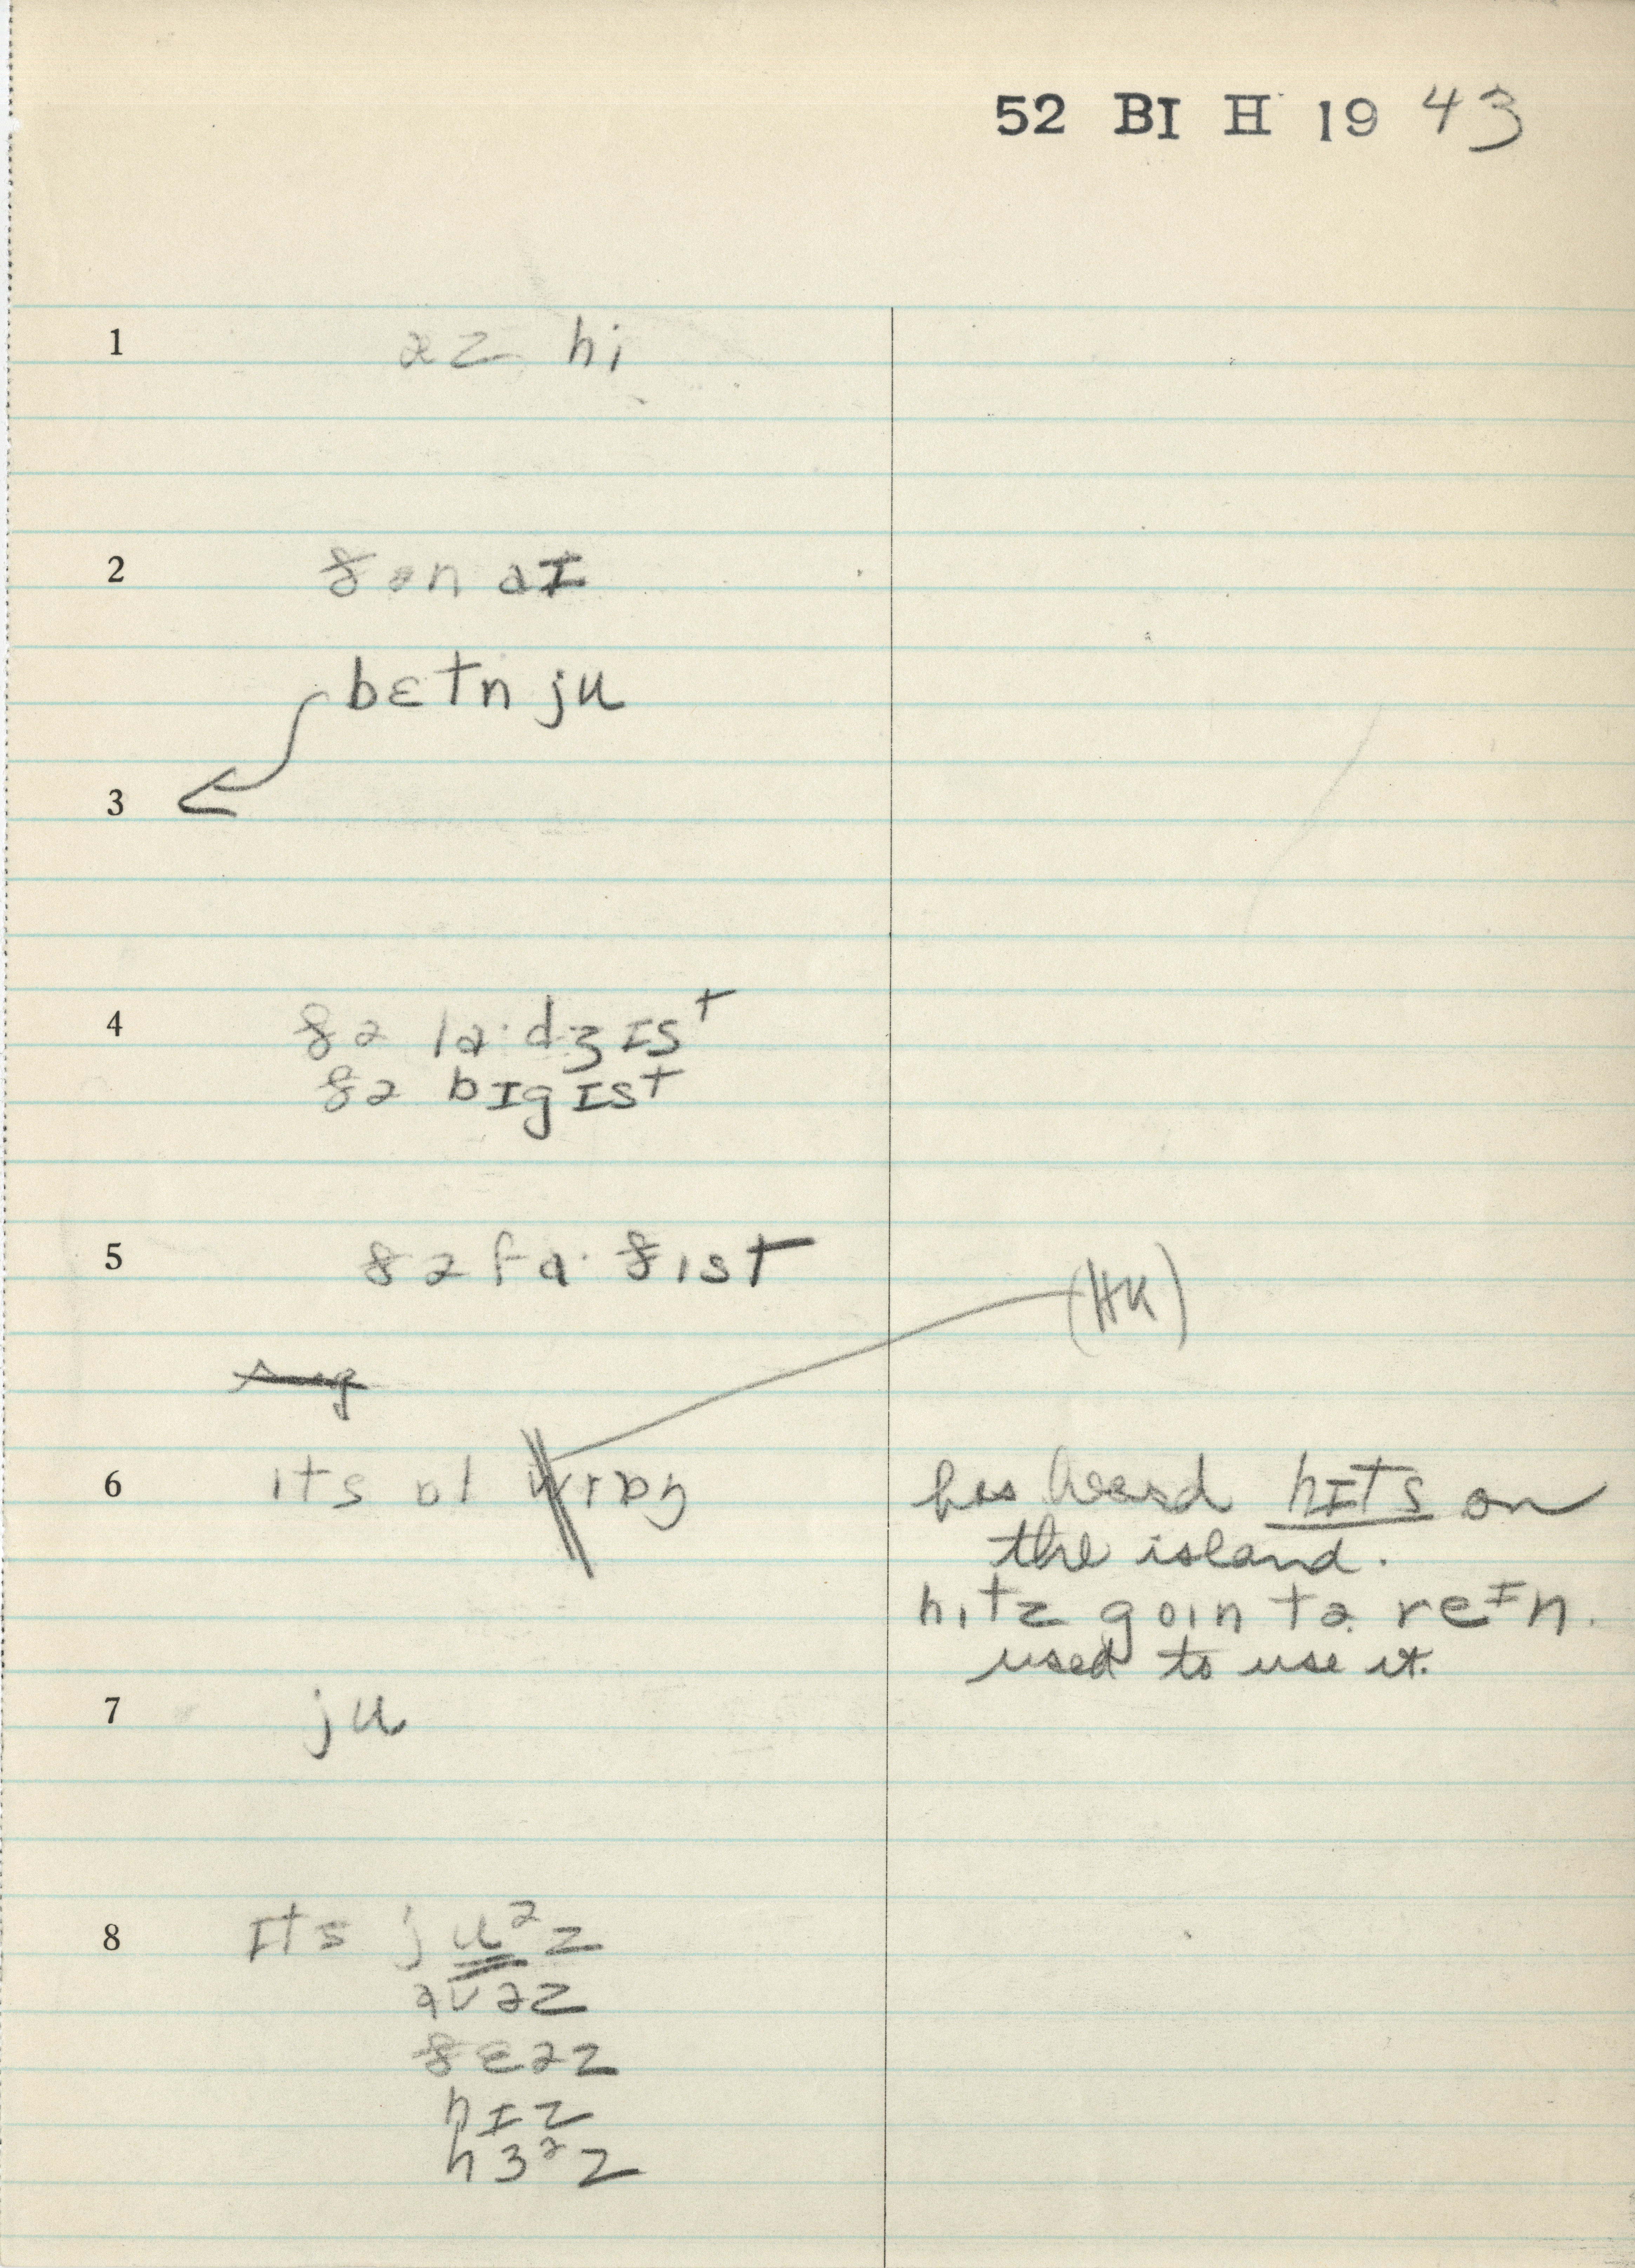 52 BI H 19 43
1 əz hi
2 ðən aɪ
bɛtn ju
3
4 ðə la·dʒɪst
ðə bɪgɪst
5 ðə fa·ðɪst
(HK)
6 ɪts ɒl wrɒŋ has heard hɪts on
the island.
hɪtz goɪn tə reɪn.
used to use it.
7 ju
8 ɪts juᵊz
aʊəz
ðɛəz
hɪz
hɜᵊz